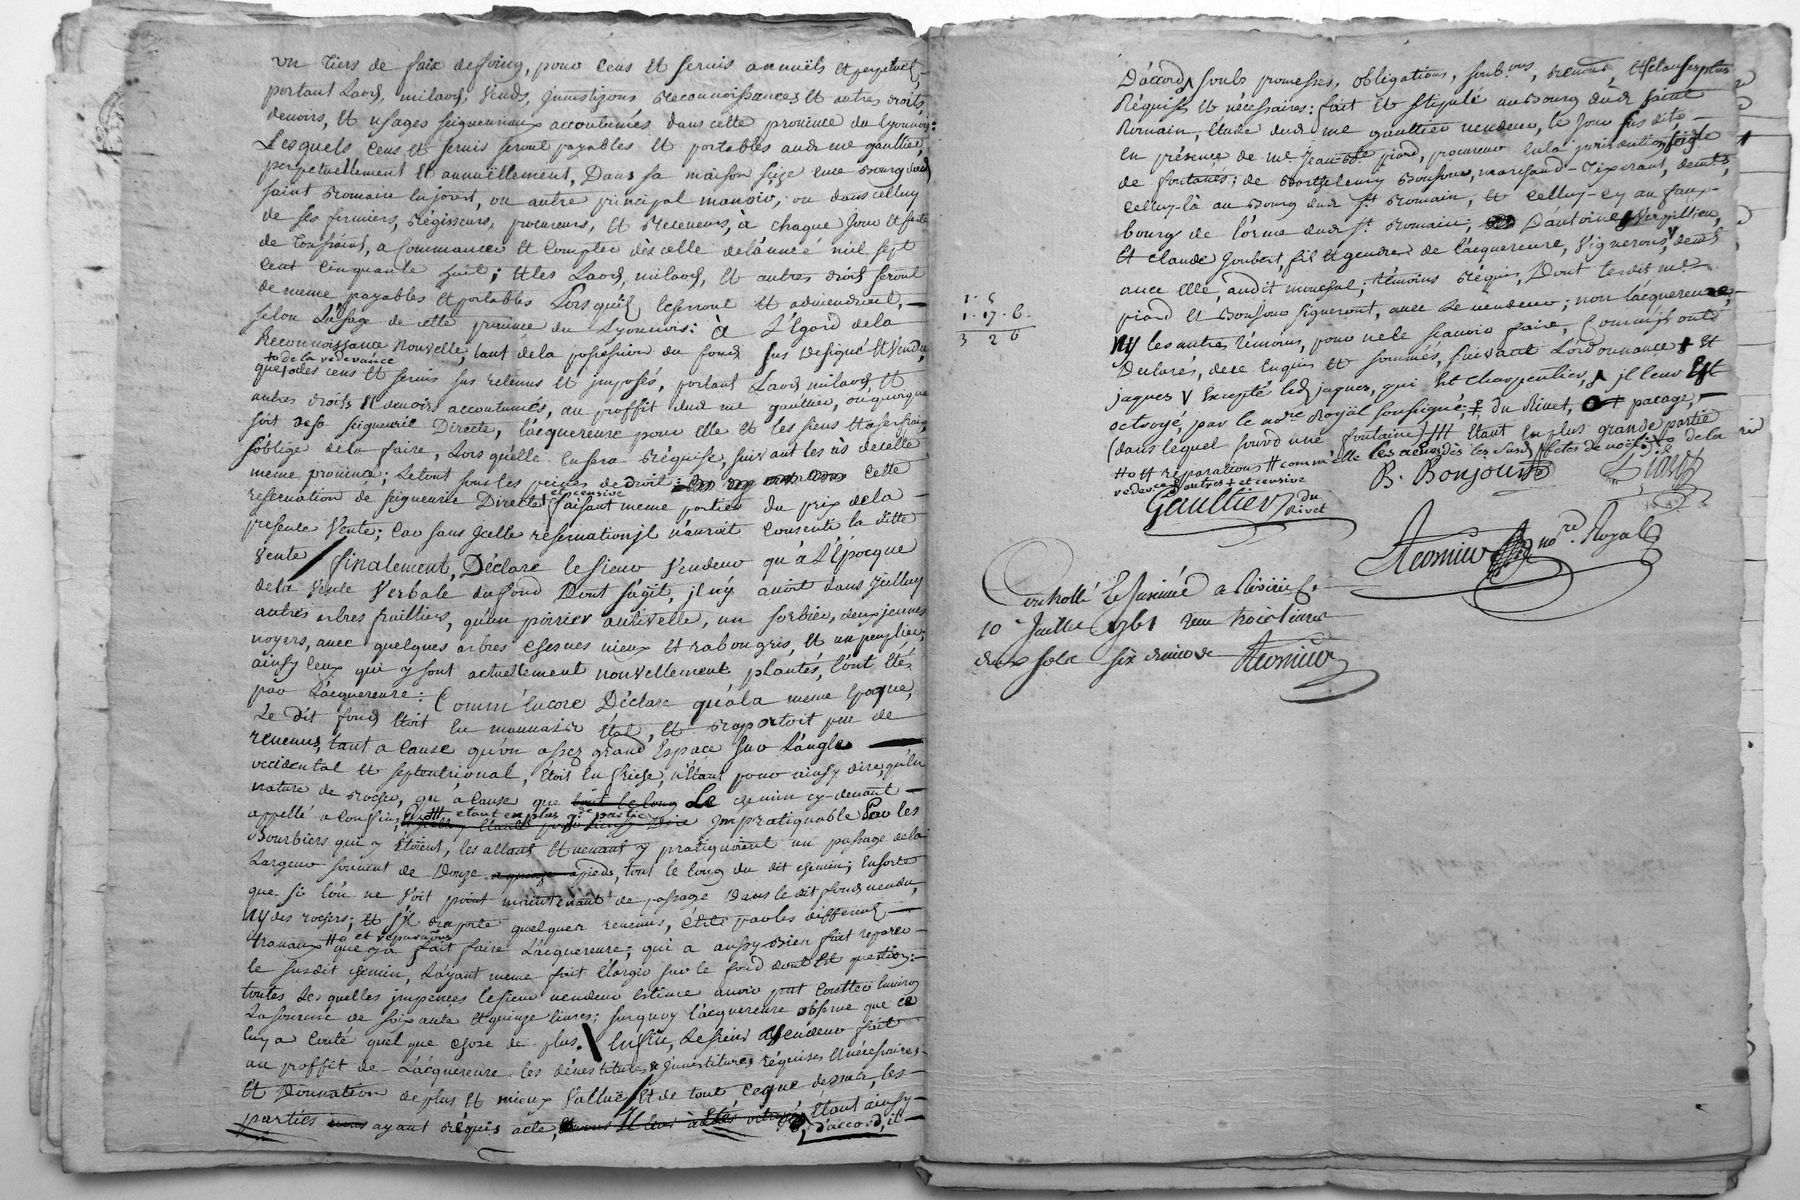 un tiers de faix de foing, pour cens et servis annuels et perpetuels
portant Laods, milaods, vends, investizons reconnoissances et autres droits,
devoirs, et usages seigneuriaux accoutumés dans cette province du lyonnois:
Lesquels cens et servis seront payables et portables audt me gaultier,
perpetuellement et annuellement, Dans sa maison size au Bourg dudt
saint Romain en jarest, ou autre principal manoir, ou dans celluy
de ses fermiers, Régisseurs, procureurs, et Receveurs, à chaque jour et feste
de toussaint, a Commancer et Compter dès celle de l'année mil sept
cent cinquante huit; et les Laods, milaods, et autres droits seront
de meme payables et portables Lorsqu'ils escherront et adviendront,
selon L'usage de cette province du Lyonnois: à L'Egard de la
Reconnoissance nouvelle, tant de la possession du fond sus designé et vendu,
to de la redevance
que des cens et servis sus retenus et imposés, portant Laods milaods, et
autres droits et devoirs accoutumés, au proffit dudt me gaultier, ou quoique
soit de sa seigneurie Directe, l'acquereure pour elle et les siens et a ses frais,
s'oblige de la faire, Lorsquelle en sera Requise, suivant les us de celle
meme province; Le tout sous les peines de droit: cette
et censive
reservation de seigneurie Directe faisant meme partie du prix de la
presente vente; Car sans jcelle reservation jl n'auroit consenti la ditte
vente / finalement, Déclare le sieur vendeur qu'à L'Epocque
de la vente verbale du fond Dont s'agit, jl n'y avoit dans jcelluy
autres arbres fruitiers, qu'un poirier autivelle, un sorbier, deux jeunes
noyers, avec quelques arbres chesnes vieux et rabougris, et un peuplier;
ainsy ceux qui y sont actuellement nouvellement plantés, l'ont étés
par L'acquereure: Comm'encore Déclare qu'à la meme Epoque,
Le dit fond étoit en mauvais État, et Rapportoit peu de
revenus, tant a cause qu'un assez grand Espace sur L'angle
occidental et septentrional, étoit en friche, n'étant pour ainsy dire, qu'en
nature de Rocher, qu'à cause que tout le long Le chemin cy-devant
etant en plus gde partie
appellé a confins, jmpratiquable Par les
Bourbiers qui y Etoient, les allants et venants y pratiquoient un passage de la
Largeur souvent de Douze a quinze pieds, tout le long du dit chemin; Ensorte
que si l'on ne voit point maintenant de passage Dans le dit fond vendu,
ny des rochers; et s'jl rapporte quelques revenus, c'est par les differents
to et reparations
travaux que y a fait faire L'acquereure; qui a aussy bien fait reparer
le susdit chemin, L'ayant meme fait Elargir sur le fond dont est question:
toutes Lesquelles jmpences le sieur vendeur estime avoir put Couster environ
La somme de soixante et quinze livres; surquoy l'acquereure observe que ce
luy a couté quelque chose de plus. \ Enfin, Le sieur vendeur fait
au proffit de L'acquereure les dévestitures & jnvestitures réquises et nécessaires
et Donnation de plus et mieux vallüe / et de tout ce que dessus, les
parties ayant réquis acte, Etant ainsy
d'accord, jl
D'accord, soubs promesses, obligations, soub.ons, renonc. et clauses plus
Réquises et nécessaires: fait et stipulé au Bourg dudt saint
Romain, étude dudt me gaultier vendeur, le jour sus dit,
En présence de me Jean-Bte piard, procureur en la jurisdiction siège
de fontanes; de Barthelemy Bonjour, marchand-Tixerant, demts,
celluy-là au Bourg dudt St Romain, et celluy-cy au faux-
bourg de l'orme dudt St Romain; D'antoine verpillieu,
et claude joubert, fils et gendre de l'acquereure, vignerons, demts
avec elle, audit muneral, témoins réquis, Dont lesdits mes
piard et Bonjour signeront, avec Le vendeur; non l'acquereure,
ny les autres témoins, pour ne le sçavoir faire, Comm'jls ont
Declarés, de ce Enquis et sommés, suivant L'ordonnance + et
jaques v Excepté ledt jaques, qui est charpentier, jl leur Est
octroyé, par le nore Royal soussigné; du Rivet, pacage,
(dans lequel sourd une fontaine) etant en plus grande partie
reparations comm'elle les acuse dès les susd fetes de noël de la
redevce autres + et censive
B. Bonjour
Piard
Gaultier du
Rivet
Reomieu nore. Royal
1 . 5
1 . 17 . 6.
3 2 6
Controllé et Insinué a Rivedeg.
10 Juillet 1761 Reçu trois livres
deux sols six deniers Reomieu